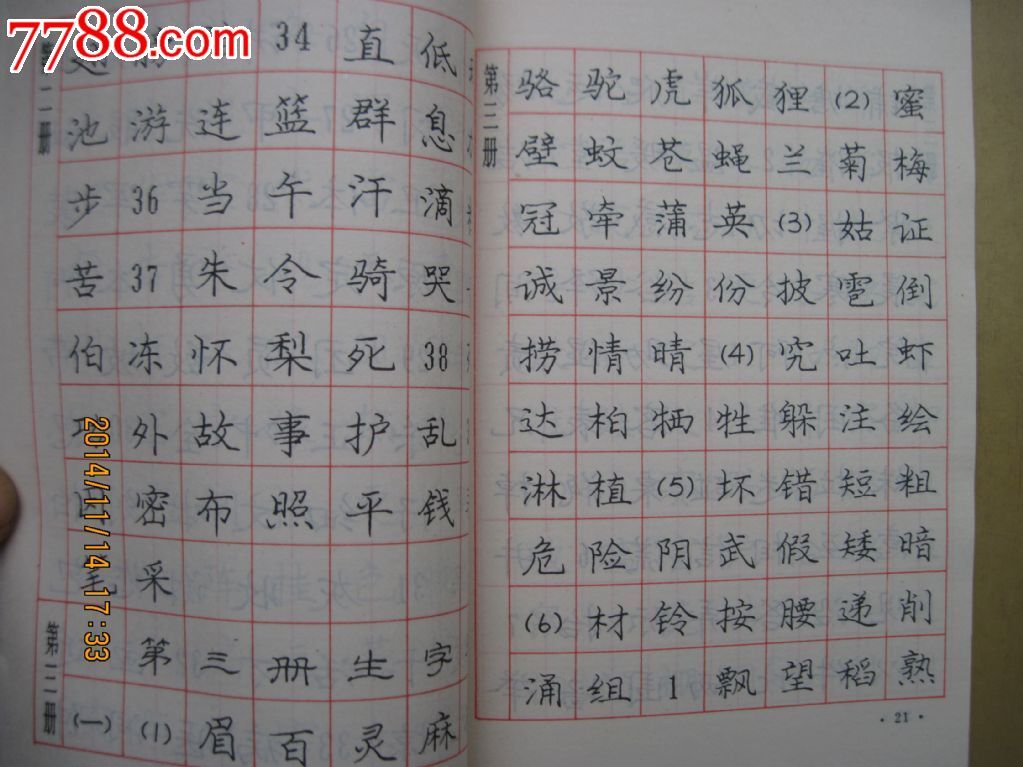 7788.com
第二册
34 直 低
池 游 连 篮 群 息
步 36 当 午 汗 滴
苦 37 朱 令 骑 哭
伯 冻 怀 梨 死 38
外 故 事 护 乱
密 布 照 平 钱
采
第三册
第 三 册 生 字
(一) (1) 眉 百 灵 麻
2014/11/14 17:33
第三册
骆 驼 虎 狐 狸 (2) 蜜
壁 蚊 苍 蝇 兰 菊 梅
冠 牵 蒲 英 (3) 姑 证
诚 景 纷 份 披 雹 倒
捞 情 晴 (4) 究 吐 虾
达 柏 牺 牲 躲 注 绘
淋 植 (5) 坏 错 短 粗
危 险 阴 武 假 矮 暗
(6) 材 铃 按 腰 递 削
涌 组 1 飘 望 稻 熟
·21·